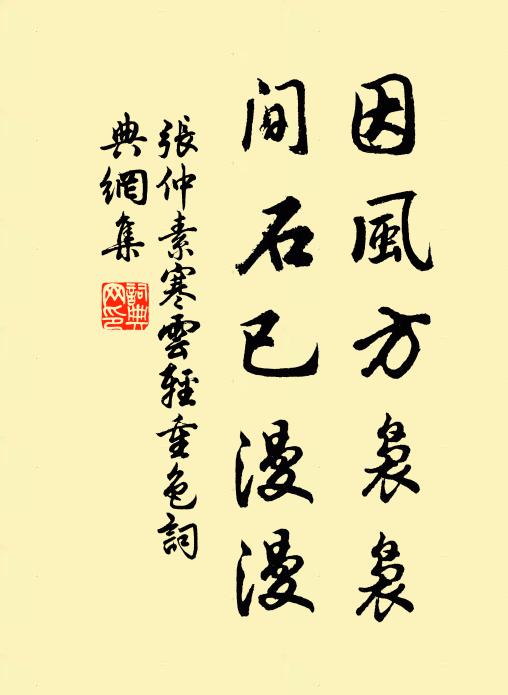 因風方裊裊
間石已漫漫
張仲素寒雲輕重色詞
典網集
詞典網印